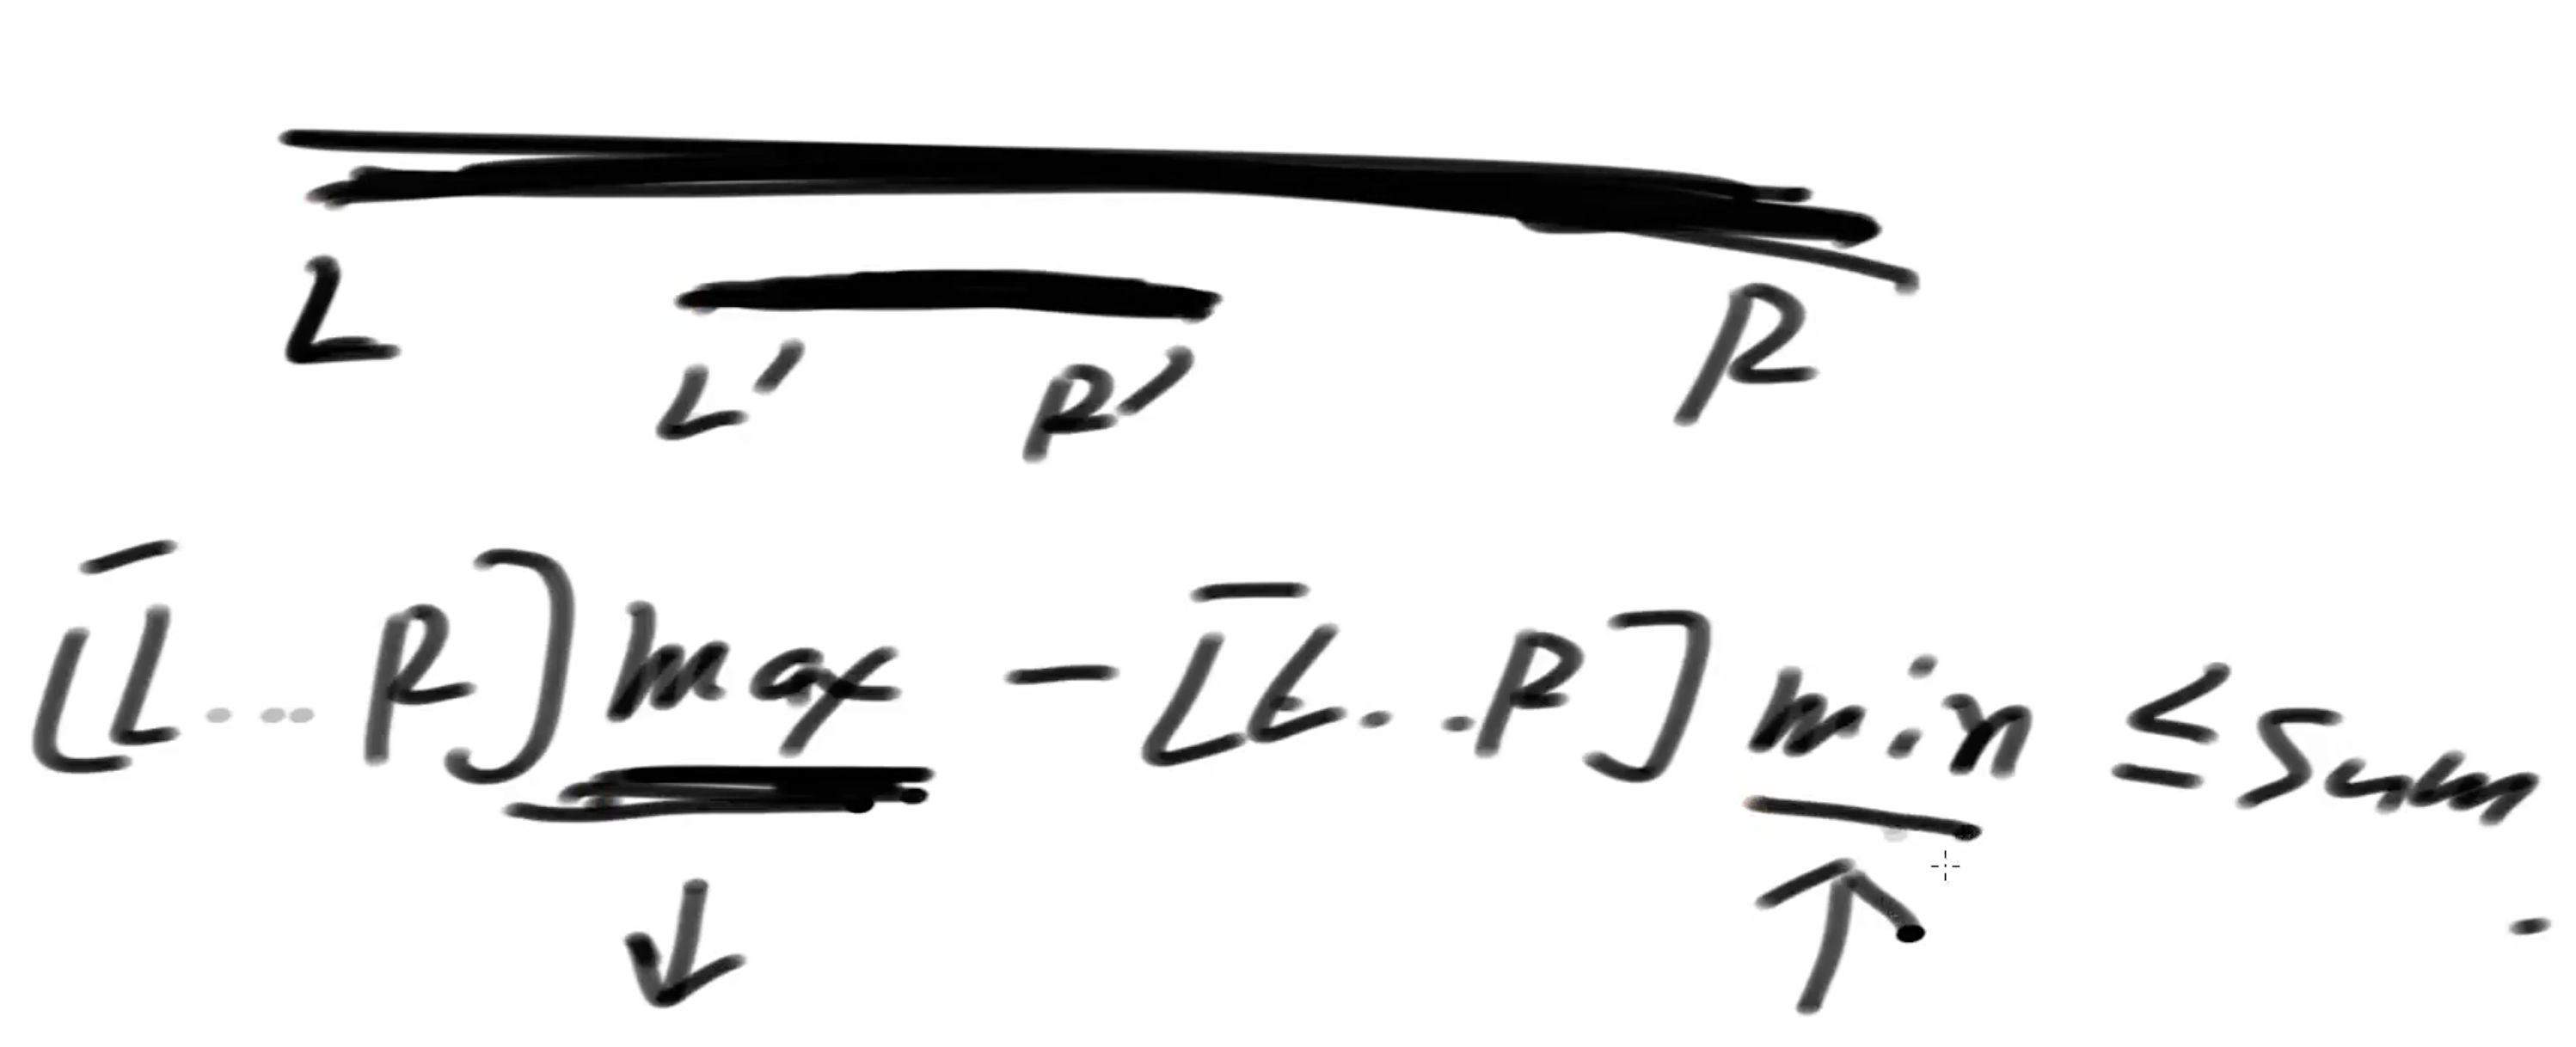 L R
L' R'
[L...R]max - [L...R]min ≤ Sum